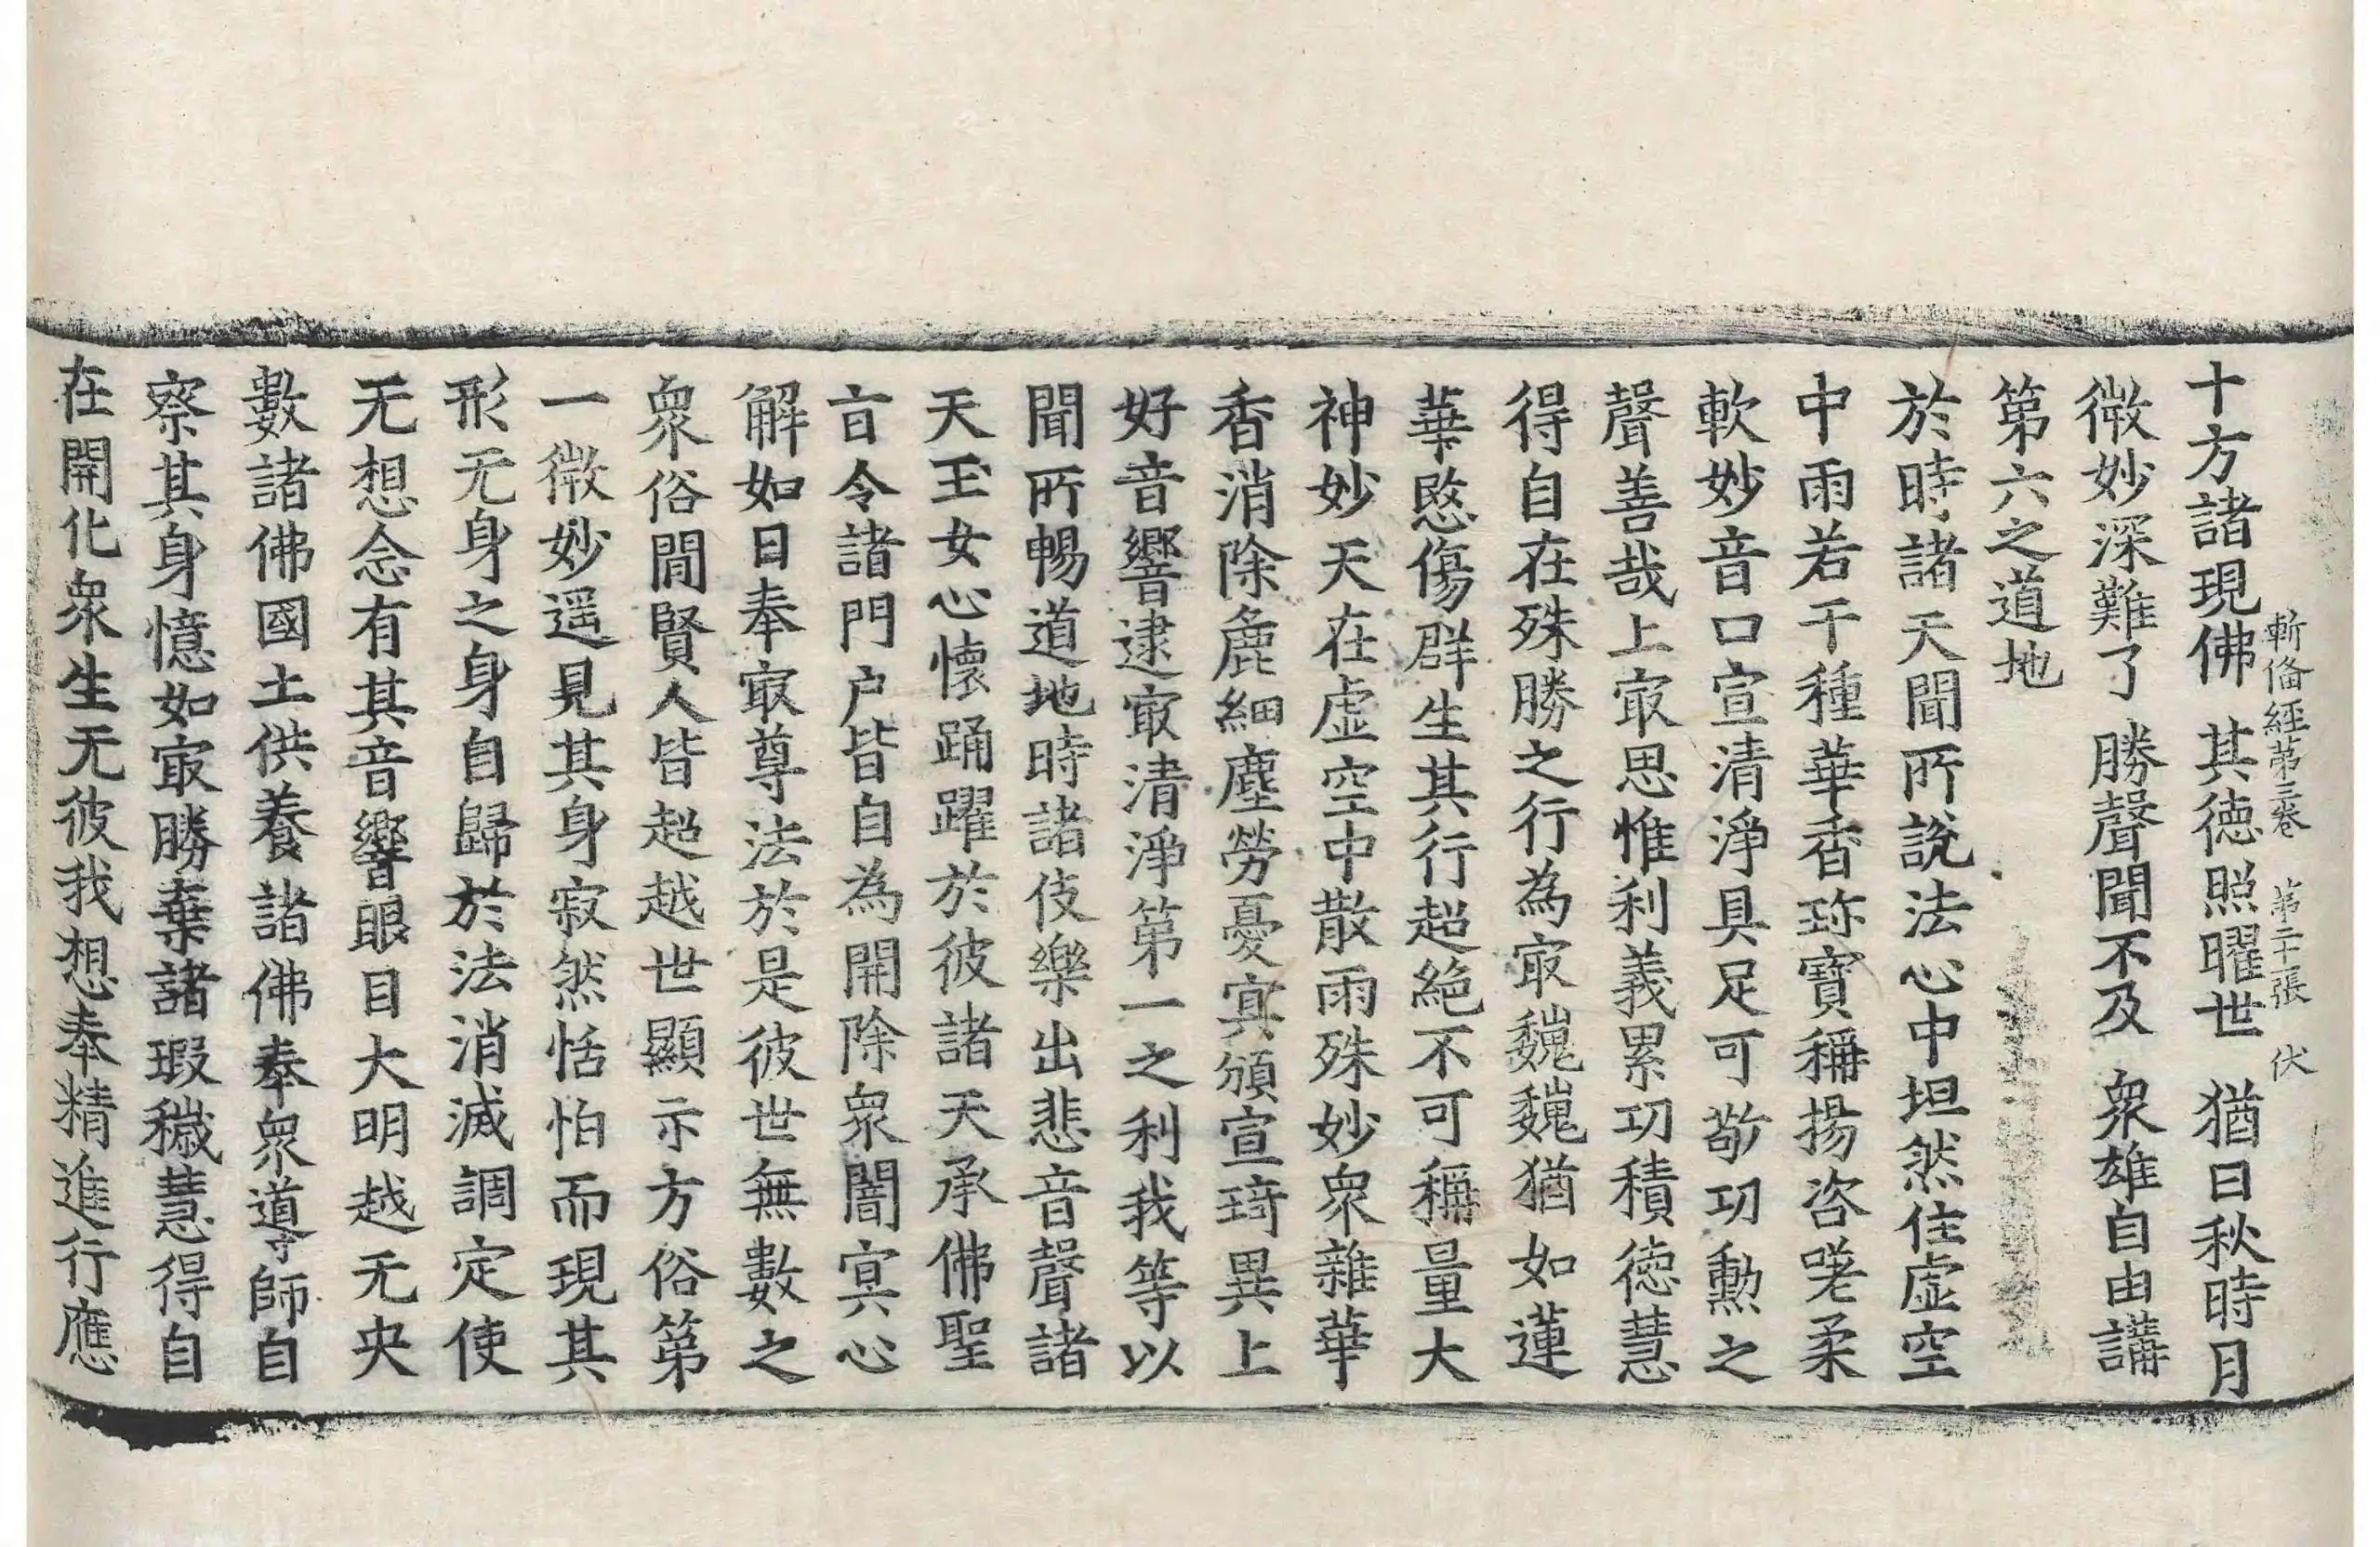 十方諸現佛　其德照曜世　猶日秋時月
漸備經第三卷　第二十張　伏
微妙深難了　勝聲聞不及　衆雄自由講
第六之道地
於時諸天聞所說法心中坦然住虛空
中雨若干種華香珎寶稱揚咨嗟柔
軟妙音口宣清淨具足可敬功勲之
聲善哉上㝡思惟利義累功積德慧
得自在殊勝之行為㝡巍巍猶如蓮
華愍傷群生其行超絕不可稱量大
神妙天在虛空中散雨殊妙衆雜華
香消除麁細塵勞憂㝠頒宣琦異上
好音響逮㝡清淨第一之利我等以
聞所暢道地時諸伎樂出悲音聲諸
天王女心懷踊躍於彼諸天承佛聖
旨令諸門戶皆自為開除衆闇㝠心
解如日奉㝡尊法於是彼世無數之
衆俗閒賢人皆超越世顯示方俗第
一微妙遥見其身寂然恬怕而現其
形无身之身自歸於法消滅調定使
无想念有其音響眼目大明越无央
數諸佛國土供養諸佛奉衆導師自
察其身憶如㝡勝棄諸瑕穢慧得自
在開化衆生无彼我想奉精進行應